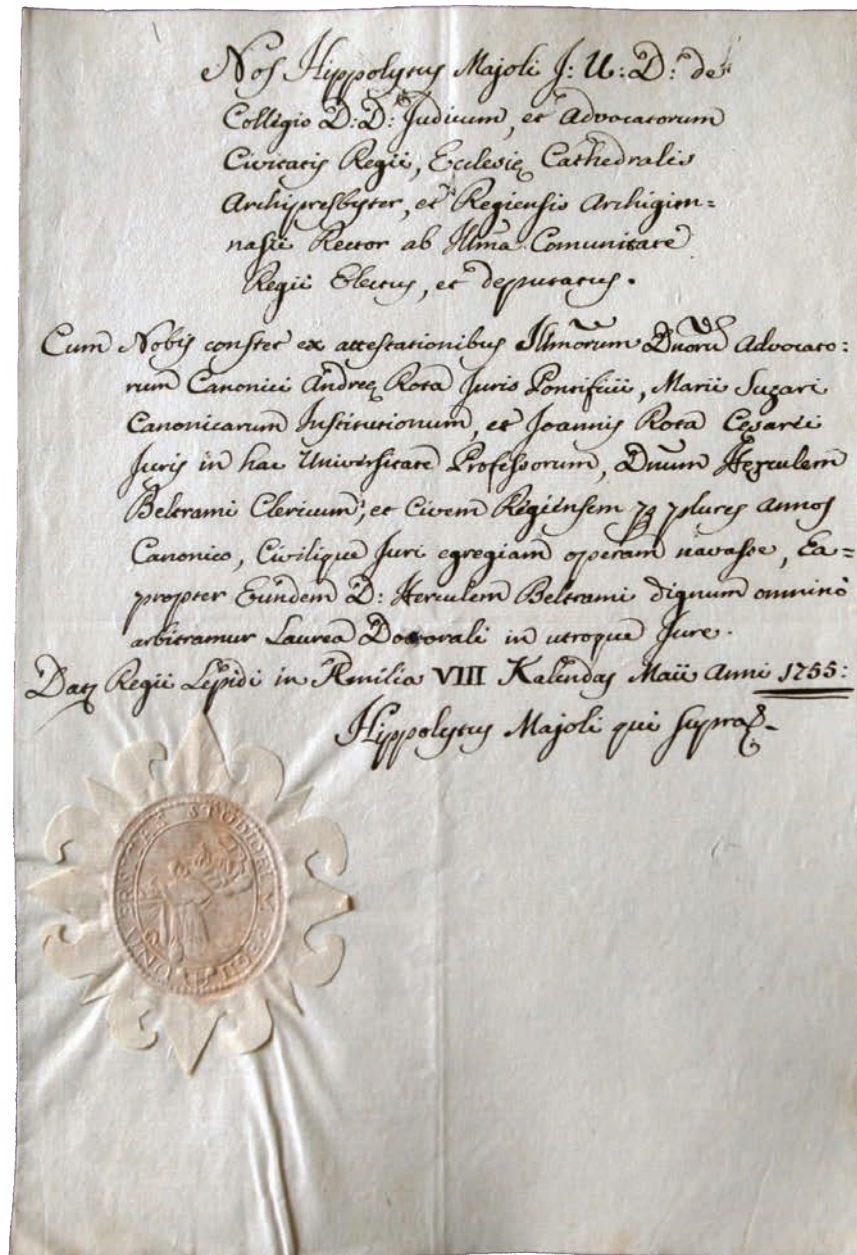 Nos Hippolytus Majoli J: U: D: de
Collegio D: D: Judicum, et Advocatorum
Civitatis Regii, Ecclesię Cathedralis
Archipresbyter, et Regiensis Archigim=
nasii Rector ab Illma Comunitate
Regii Electus, et deputatus.
Cum Nobis constet ex attestationibus Illmorum Dnorũ Advocato:
rum Canonici Andreę Rota Juris Pontificii, Marii Suzari
Canonicarum Institutionum, et Joannis Rota Cęsarei
Juris in hac Universitate Professorum, Dnum Herculem
Beltrami Clericum, et Civem Regiensem ꝑ plures annos
Canonico, Civilique Juri egregiam operam navasse, Ea=
propter Eundem D: Herculem Beltrami dignum omninò
arbitramur Laurea Doctorali in utroque Jure.
Datę Regii Lepidi in Æmilia VIII Kalendas Maii Anni 1755:
Hippolytus Majoli qui supra
UNIVERSITAS STUDIORUM REGII